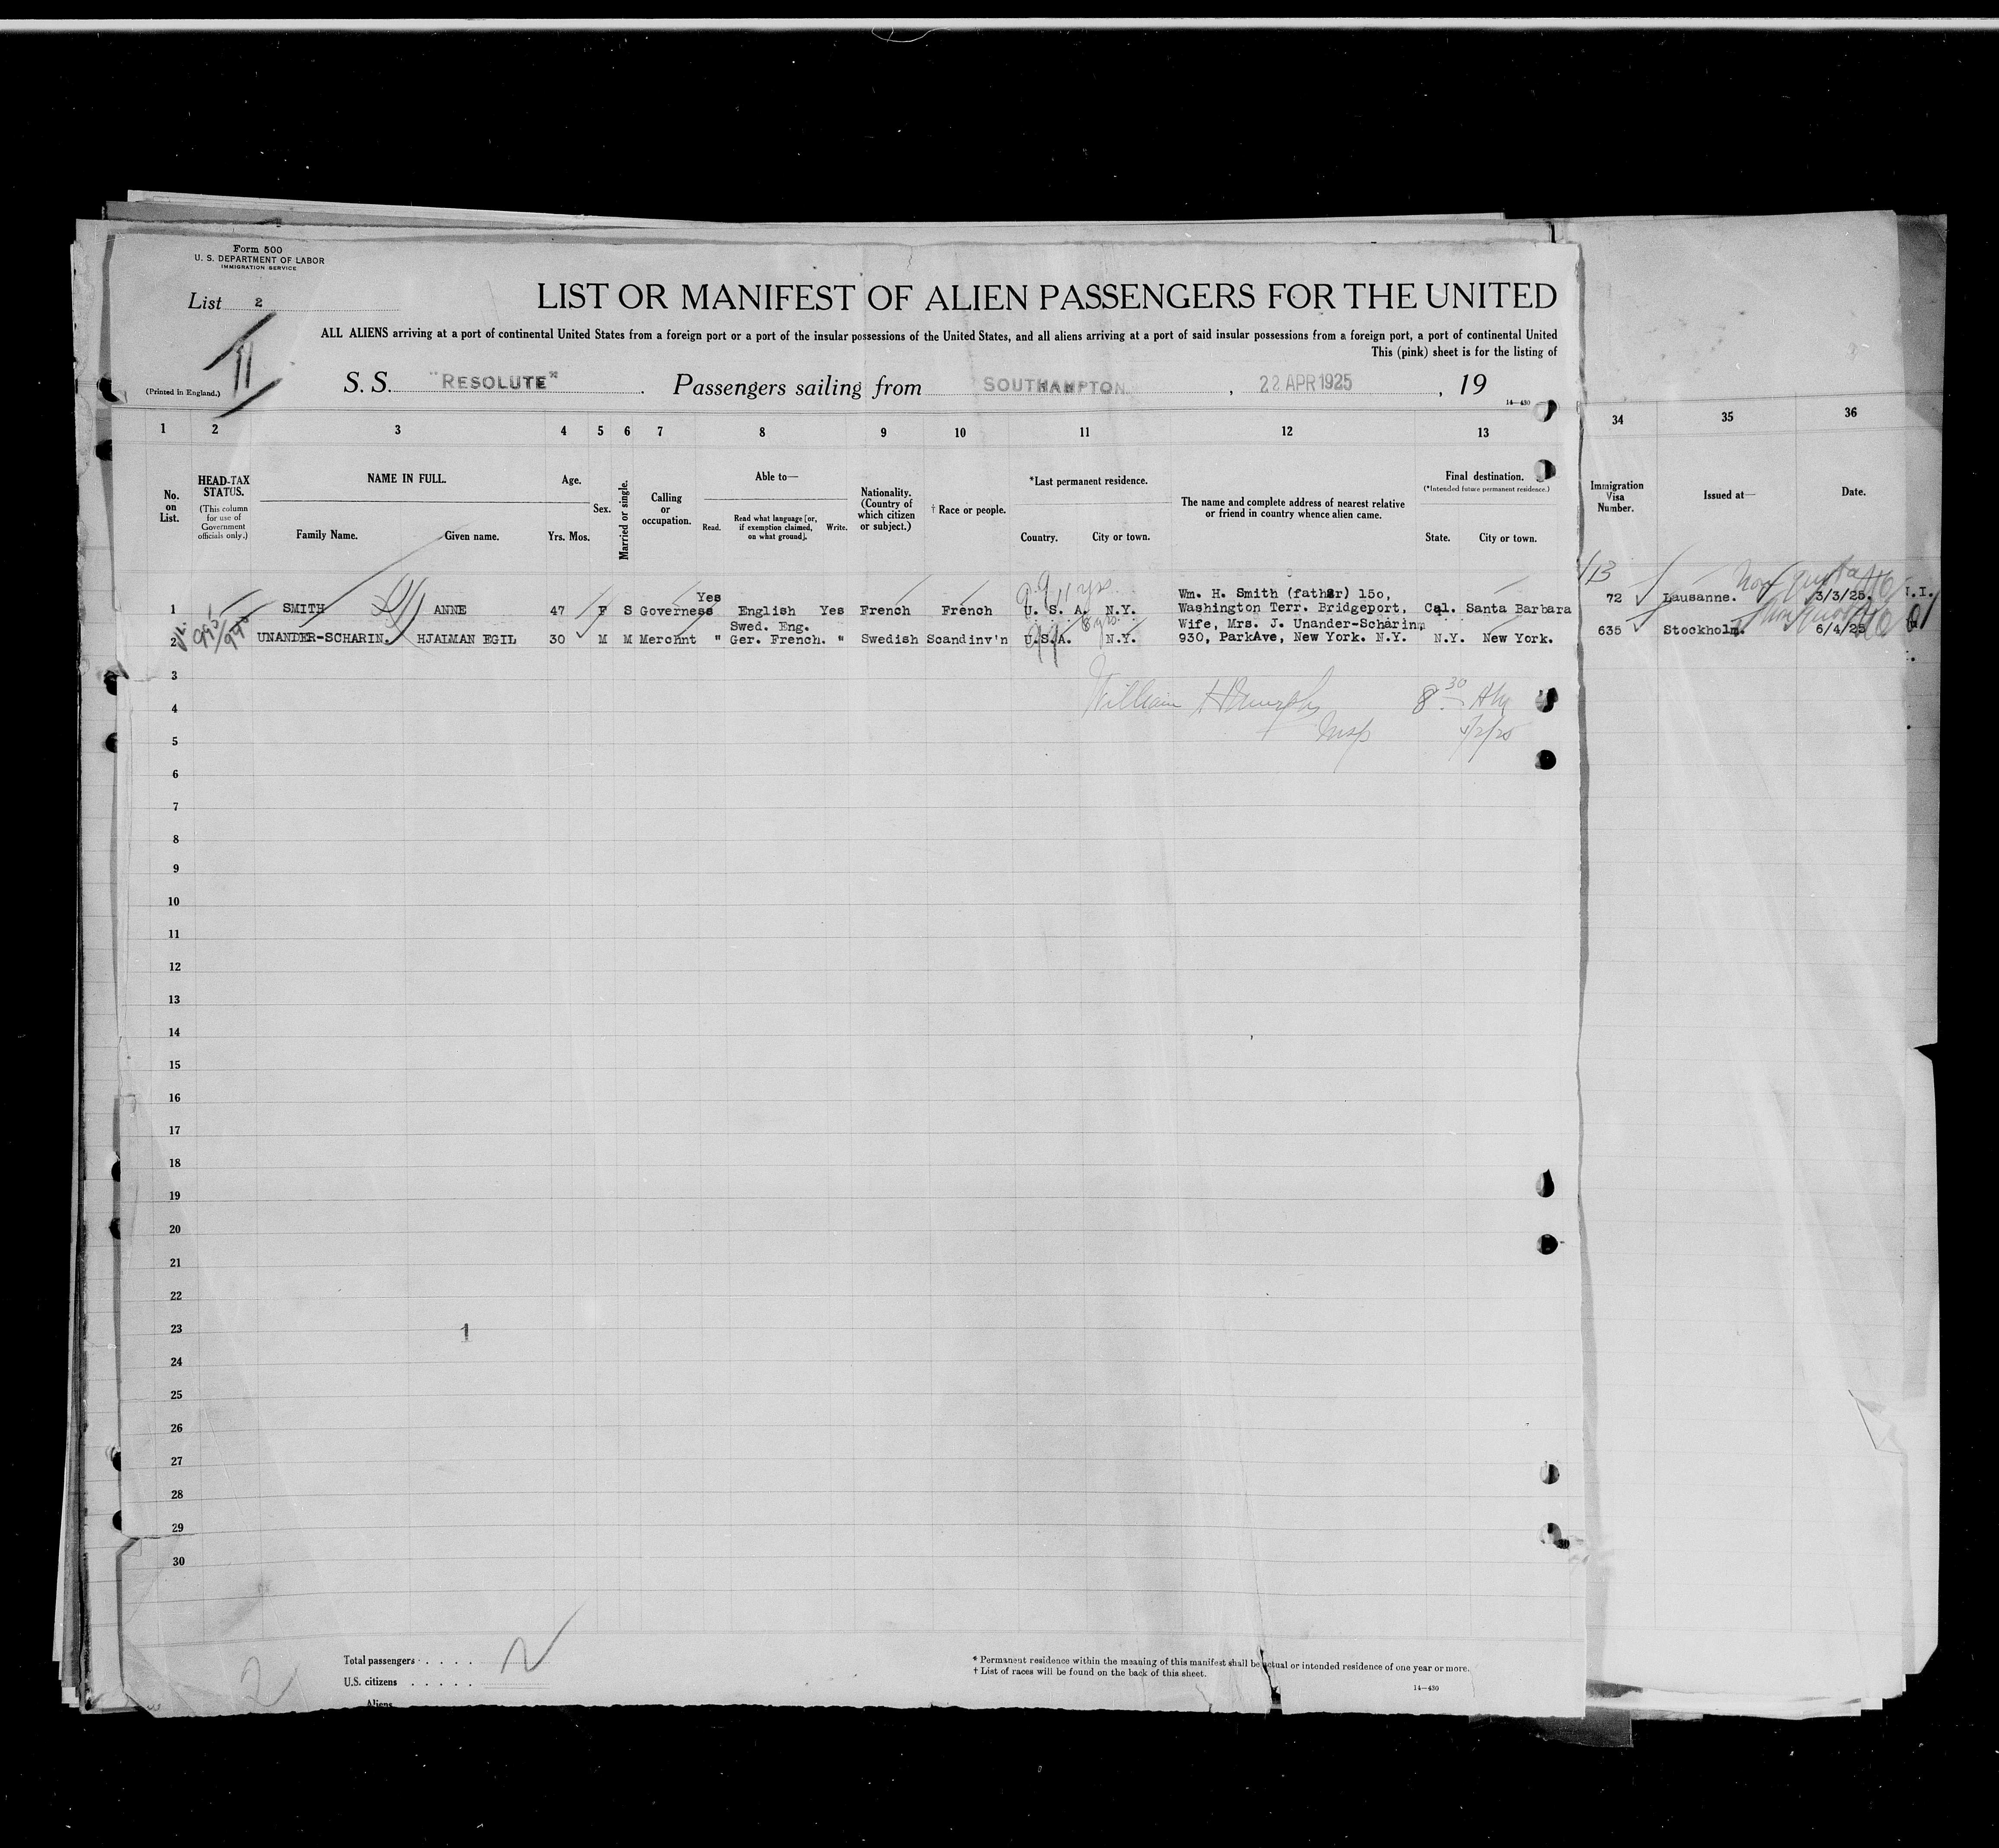 Form 500
U. S. DEPARTMENT OF LABOR
IMMIGRATION SERVICE
List 2
LIST OR MANIFEST OF ALIEN PASSENGERS FOR THE UNITED
ALL ALIENS arriving at a port of continental United States from a foreign port or a port of the insular possessions of the United States, and all aliens arriving at a port of said insular possessions from a foreign port, a port of continental United
This (pink) sheet is for the listing of
II
(Printed in England.)
S. S. "RESOLUTE". Passengers sailing from SOUTHAMPTON, 22 APR 1925, 19
14—430
1 2 3 4 5 6 7 8 9 10 11 12 13 34 35 36
No. on List.
HEAD-TAX STATUS.
(This column for use of Government officials only.)
NAME IN FULL.
Family Name. Given name.
Age.
Yrs. Mos.
Sex.
Married or single.
Calling or occupation.
Able to—
Read. Read what language [or, if exemption claimed, on what ground]. Write.
Nationality. (Country of which citizen or subject.)
† Race or people.
*Last permanent residence.
Country. City or town.
The name and complete address of nearest relative or friend in country whence alien came.
Final destination.
(*Intended future permanent residence.)
State. City or town.
Immigration Visa Number.
Issued at—
Date.
1 SMITH ANNE 47 F S Governess Yes English Yes French French U. S. A. N.Y. Wm. H. Smith (father) 150, Washington Terr. Bridgeport, Cal. Santa Barbara 72 Lausanne. 3/3/25.
11 yrs
2 UNANDER-SCHARIN. HJALMAN EGIL 30 M M Merchnt " Swed. Eng. Ger. French. " Swedish Scandinv'n U.S.A. N.Y. Wife, Mrs. J. Unander-Scharin, 930, ParkAve, New York. N.Y. N.Y. New York. 635 Stockholm. 6/4/25
6 yrs
3
William
8 30 AM
4
Insp
5/2/25
5
6
7
8
9
10
11
12
13
14
15
16
17
18
19
20
21
22
23 1
24
25
26
27
28
29
30
Total passengers . . . . .
U.S. citizens . . . . .
Aliens
2
* Permanent residence within the meaning of this manifest shall be actual or intended residence of one year or more.
† List of races will be found on the back of this sheet.
14—430